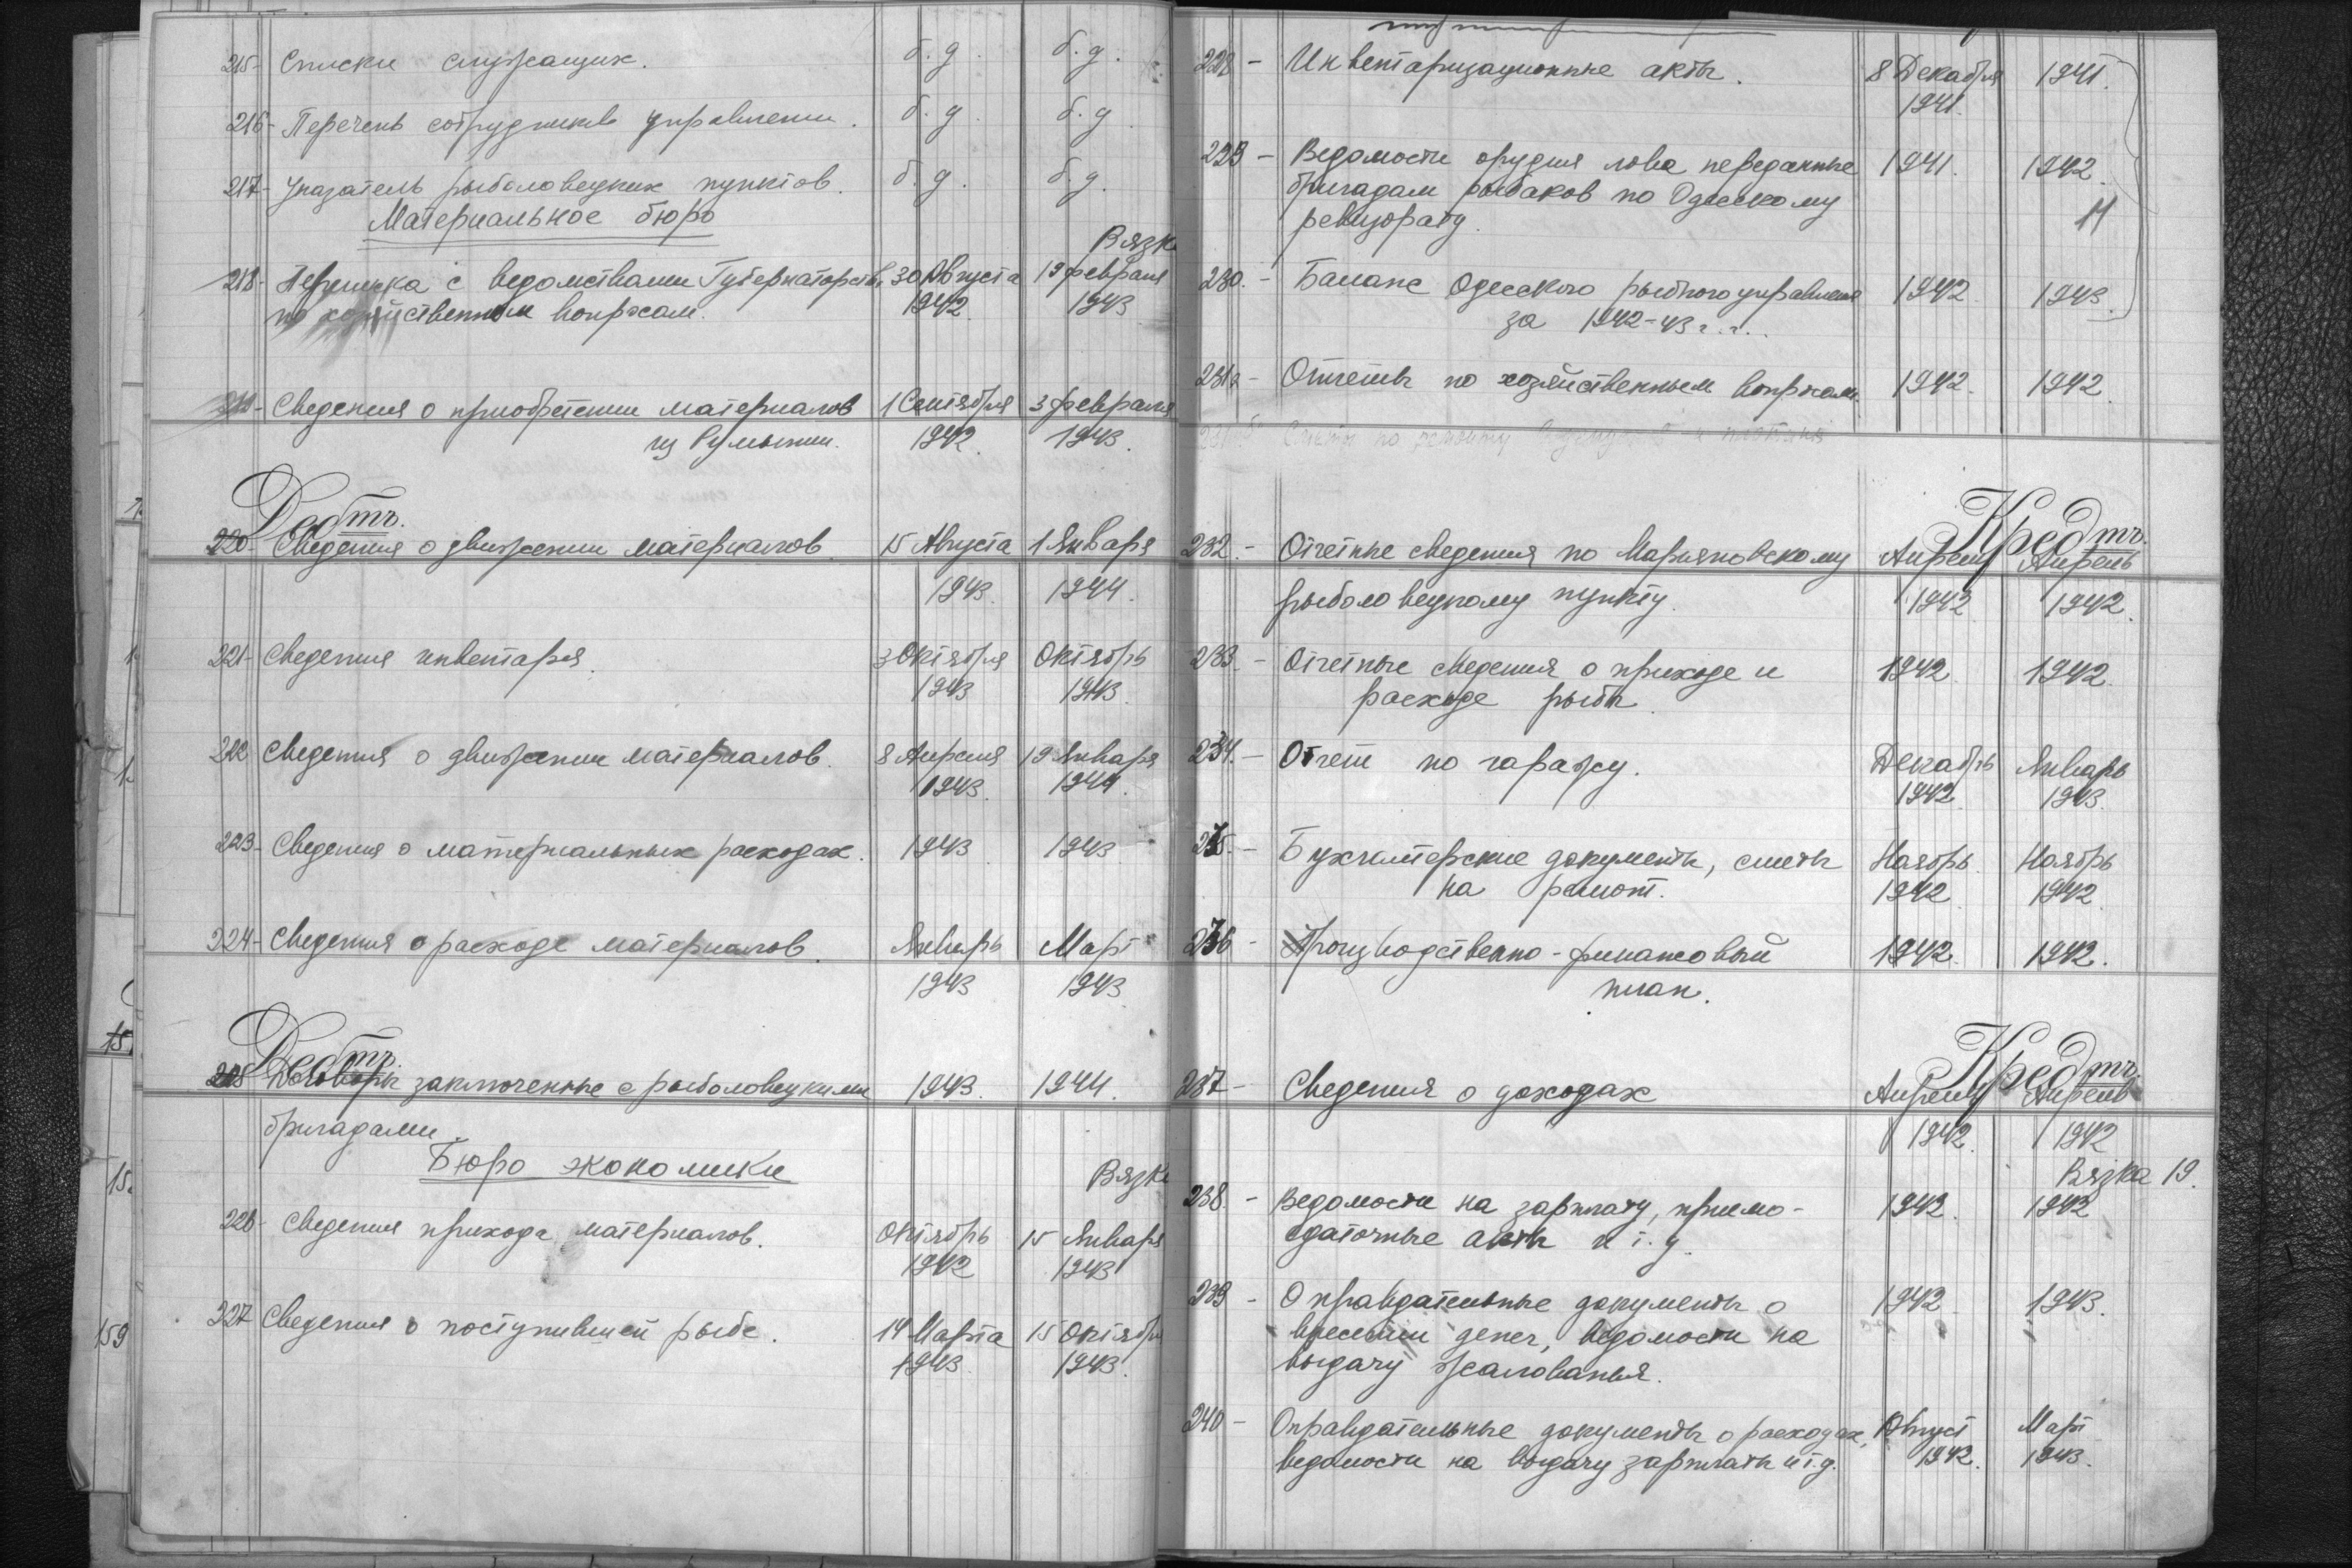 215- Списки служащих. б.д. б.д.
216- Перечень сотрудников управления. б.д. б.д.
217- Указатель рыболовецких пунктов. б.д. б.д.
Материальное бюро
Вязк
218- Переписка с ведомствами Губернаторства 30 Августа 19 февраля
по хозяйственным вопросам. 1942 1943
219- Сведения о приобретении материалов 1 Сентября 3 февраля
из Румынии. 1942. 1943.
Дебтъ.
220- Сведения о движении материалов. 15 Августа 1 Января
1943. 1944.
221- Сведения инвентаря. 3 Октября Октябрь
1943 1943.
222 Сведения о движении материалов. 8 Апреля 19 Января
1943. 1944.
223- Сведения о материальных расходах. 1943 1943
224- Сведения о расходе материалов. Январь Март
1943 1943
Дебтъ.
225 Договоры заключенные с рыболовецкими 1943. 1944.
бригадами.
Бюро экономики
Вязк
226- Сведения прихода материалов. Октябрь 15 Января
1942 1943
227 Сведения о поступившей рыбе. 14 Марта 15 Октября
1943. 1943.
228 - Инвентаризационные акты. 8 Декабря 1941.
1941.
229 - Ведомости орудия лова переданные 1941. 1942.
бригадам рыбаков по Одесскому
ревизорату. 11
230. - Баланс Одесского рыбного управления 1942 1943.
за 1942-43 г.г.
231а - Отчеты по хозяйственным вопросам. 1942. 1942.
Сметы по ремонту
Кредтъ.
232. - Отчетные сведения по Марьяновскому Апрель Апрель
рыболовецкому пункту. 1942 1942.
233. - Отчетные сведения о приходе и 1942. 1942.
расходе рыбы.
234. - Отчет по гаражу. Декабрь Январь
1942. 1943.
235. - Бухгалтерские документы, сметы Ноябрь Ноябрь
на ремонт. 1942. 1942.
236 - Производственно-финансовый 1942. 1942.
план.
Кредтъ.
237 - Сведения о доходах Апрель Апрель
1942. 1942
Вязка 19.
238. - Ведомости на зарплату, приемо- 1942. 1942
сдаточные акты и т.д.
239 - Оправдательные документы о 1942 1943.
внесении денег, ведомости на
выдачу жалованья.
240 - Оправдательные документы о расходах, Август Март
ведомости на выдачу зарплаты и т.д. 1942. 1943.
15
159